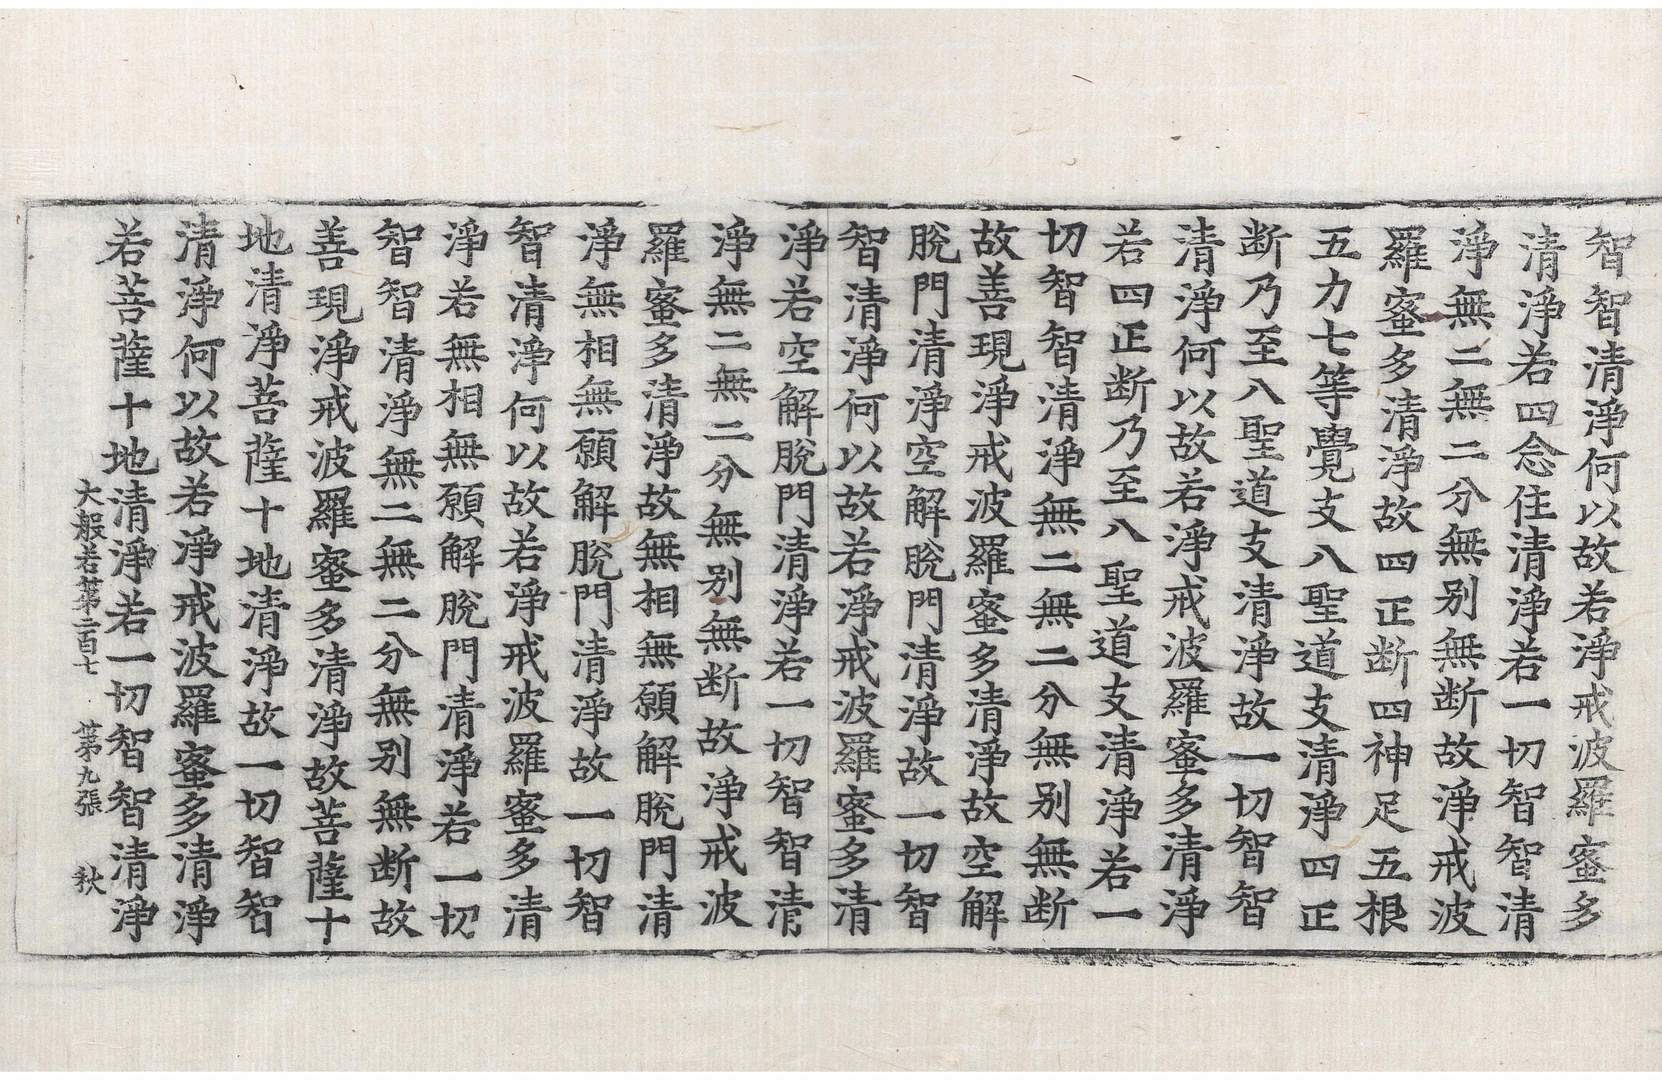 智智清淨何以故若淨戒波羅蜜多
清淨若四念住清淨若一切智智清
淨無二無二分無别無断故淨戒波
羅蜜多清淨故四正断四神足五根
五力七等覺支八聖道支清淨四正
断乃至八聖道支清淨故一切智智
清淨何以故若淨戒波羅蜜多清淨
若四正断乃至八聖道支清淨若一
切智智清淨無二無二分無别無断
故善現淨戒波羅蜜多清淨故空解
脫門清淨空解脫門清淨故一切智
智清淨何以故若淨戒波羅蜜多清
淨若空解脫門清淨若一切智智清
淨無二無二分無别無断故淨戒波
羅蜜多清淨故無相無願解脫門清
淨無相無願解脫門清淨故一切智
智清淨何以故若淨戒波羅蜜多清
淨若無相無願解脫門清淨若一切
智智清淨無二無二分無别無断故
善現淨戒波羅蜜多清淨故菩薩十
地清淨菩薩十地清淨故一切智智
清淨何以故若淨戒波羅蜜多清淨
若菩薩十地清淨若一切智智清淨
大般若第二百七 第九張 秋